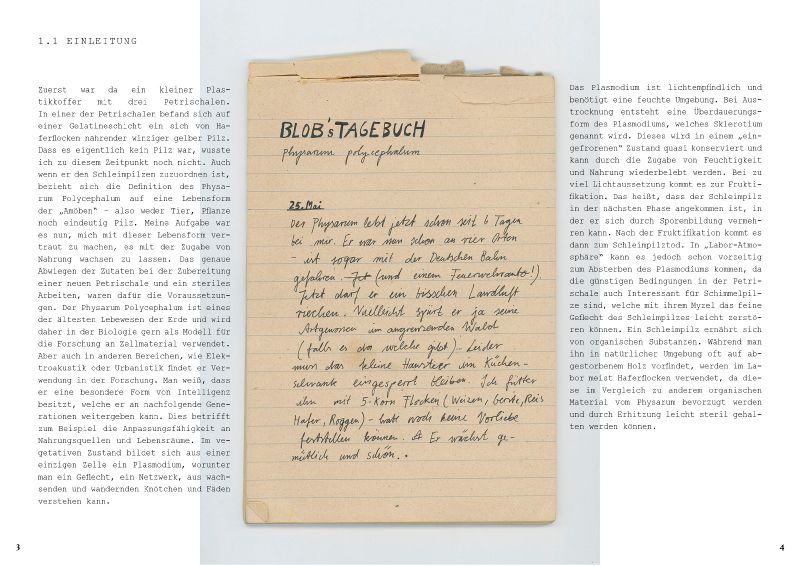 1.1 EINLEITUNG
Zuerst war da ein kleiner Plas-
tikkoffer mit drei Petrischalen.
In einer der Petrischalen befand sich auf
einer Gelatineschicht ein sich von Ha-
ferflocken nährender winziger gelber Pilz.
Dass es eigentlich kein Pilz war, wusste
ich zu diesem Zeitpunkt noch nicht. Auch
wenn er den Schleimpilzen zuzuordnen ist,
bezieht sich die Definition des Physa-
rum Polycephalum auf eine Lebensform
der „Amöben“ – also weder Tier, Pflanze
noch eindeutig Pilz. Meine Aufgabe war
es nun, mich mit dieser Lebensform ver-
traut zu machen, es mit der Zugabe von
Nahrung wachsen zu lassen. Das genaue
Abwiegen der Zutaten bei der Zubereitung
einer neuen Petrischale und ein steriles
Arbeiten, waren dafür die Voraussetzun-
gen. Der Physarum Polycephalum ist eines
der ältesten Lebewesen der Erde und wird
daher in der Biologie gern als Modell für
die Forschung an Zellmaterial verwendet.
Aber auch in anderen Bereichen, wie Elek-
troakustik oder Urbanistik findet er Ver-
wendung in der Forschung. Man weiß, dass
er eine besondere Form von Intelligenz
besitzt, welche er an nachfolgende Gene-
rationen weitergeben kann. Dies betrifft
zum Beispiel die Anpassungsfähigkeit an
Nahrungsquellen und Lebensräume. Im ve-
getativen Zustand bildet sich aus einer
einzigen Zelle ein Plasmodium, worunter
man ein Geflecht, ein Netzwerk, aus wach-
senden und wandernden Knötchen und Fäden
verstehen kann.
3
BLOB's TAGEBUCH
Physarum polycephalum
25. Mai
Der Physarum lebt jetzt schon seit 6 Tagen
bei mir. Er war nun schon an vier Orten
- ist sogar mit der Deutschen Bahn
gefahren. (und einem Feuerwehrauto!)
Jetzt darf er ein bisschen Landluft
riechen. Vielleicht spürt er ja seine
Artgenossen im angrenzenden Wald
(falls es da welche gibt) - Leider
muss das kleine Haustier im Küchen-
schrank eingesperrt bleiben. Ich fütter
ihn mit 5-Korn Flocken (Weizen, Gerste, Reis
Hafer, Roggen) - hab noch keine Vorliebe
feststellen können. Er wächst ge-
mütlich und schön.
Das Plasmodium ist lichtempfindlich und
benötigt eine feuchte Umgebung. Bei Aus-
trocknung entsteht eine Überdauerungs-
form des Plasmodiums, welches Sklerotium
genannt wird. Dieses wird in einem „ein-
gefrorenen“ Zustand quasi konserviert und
kann durch die Zugabe von Feuchtigkeit
und Nahrung wiederbelebt werden. Bei zu
viel Lichtaussetzung kommt es zur Frukti-
fikation. Das heißt, dass der Schleimpilz
in der nächsten Phase angekommen ist, in
der er sich durch Sporenbildung vermeh-
ren kann. Nach der Fruktifikation kommt es
dann zum Schleimpilztod. In „Labor-Atmo-
sphäre“ kann es jedoch schon vorzeitig
zum Absterben des Plasmodiums kommen, da
die günstigen Bedingungen in der Petri-
schale auch Interessant für Schimmelpil-
ze sind, welche mit ihrem Myzel das feine
Geflecht des Schleimpilzes leicht zerstö-
ren können. Ein Schleimpilz ernährt sich
von organischen Substanzen. Während man
ihn in natürlicher Umgebung oft auf ab-
gestorbenem Holz vorfindet, werden im La-
bor meist Haferflocken verwendet, da die-
se im Vergleich zu anderem organischen
Material vom Physarum bevorzugt werden
und durch Erhitzung leicht steril gehal-
ten werden können.
4